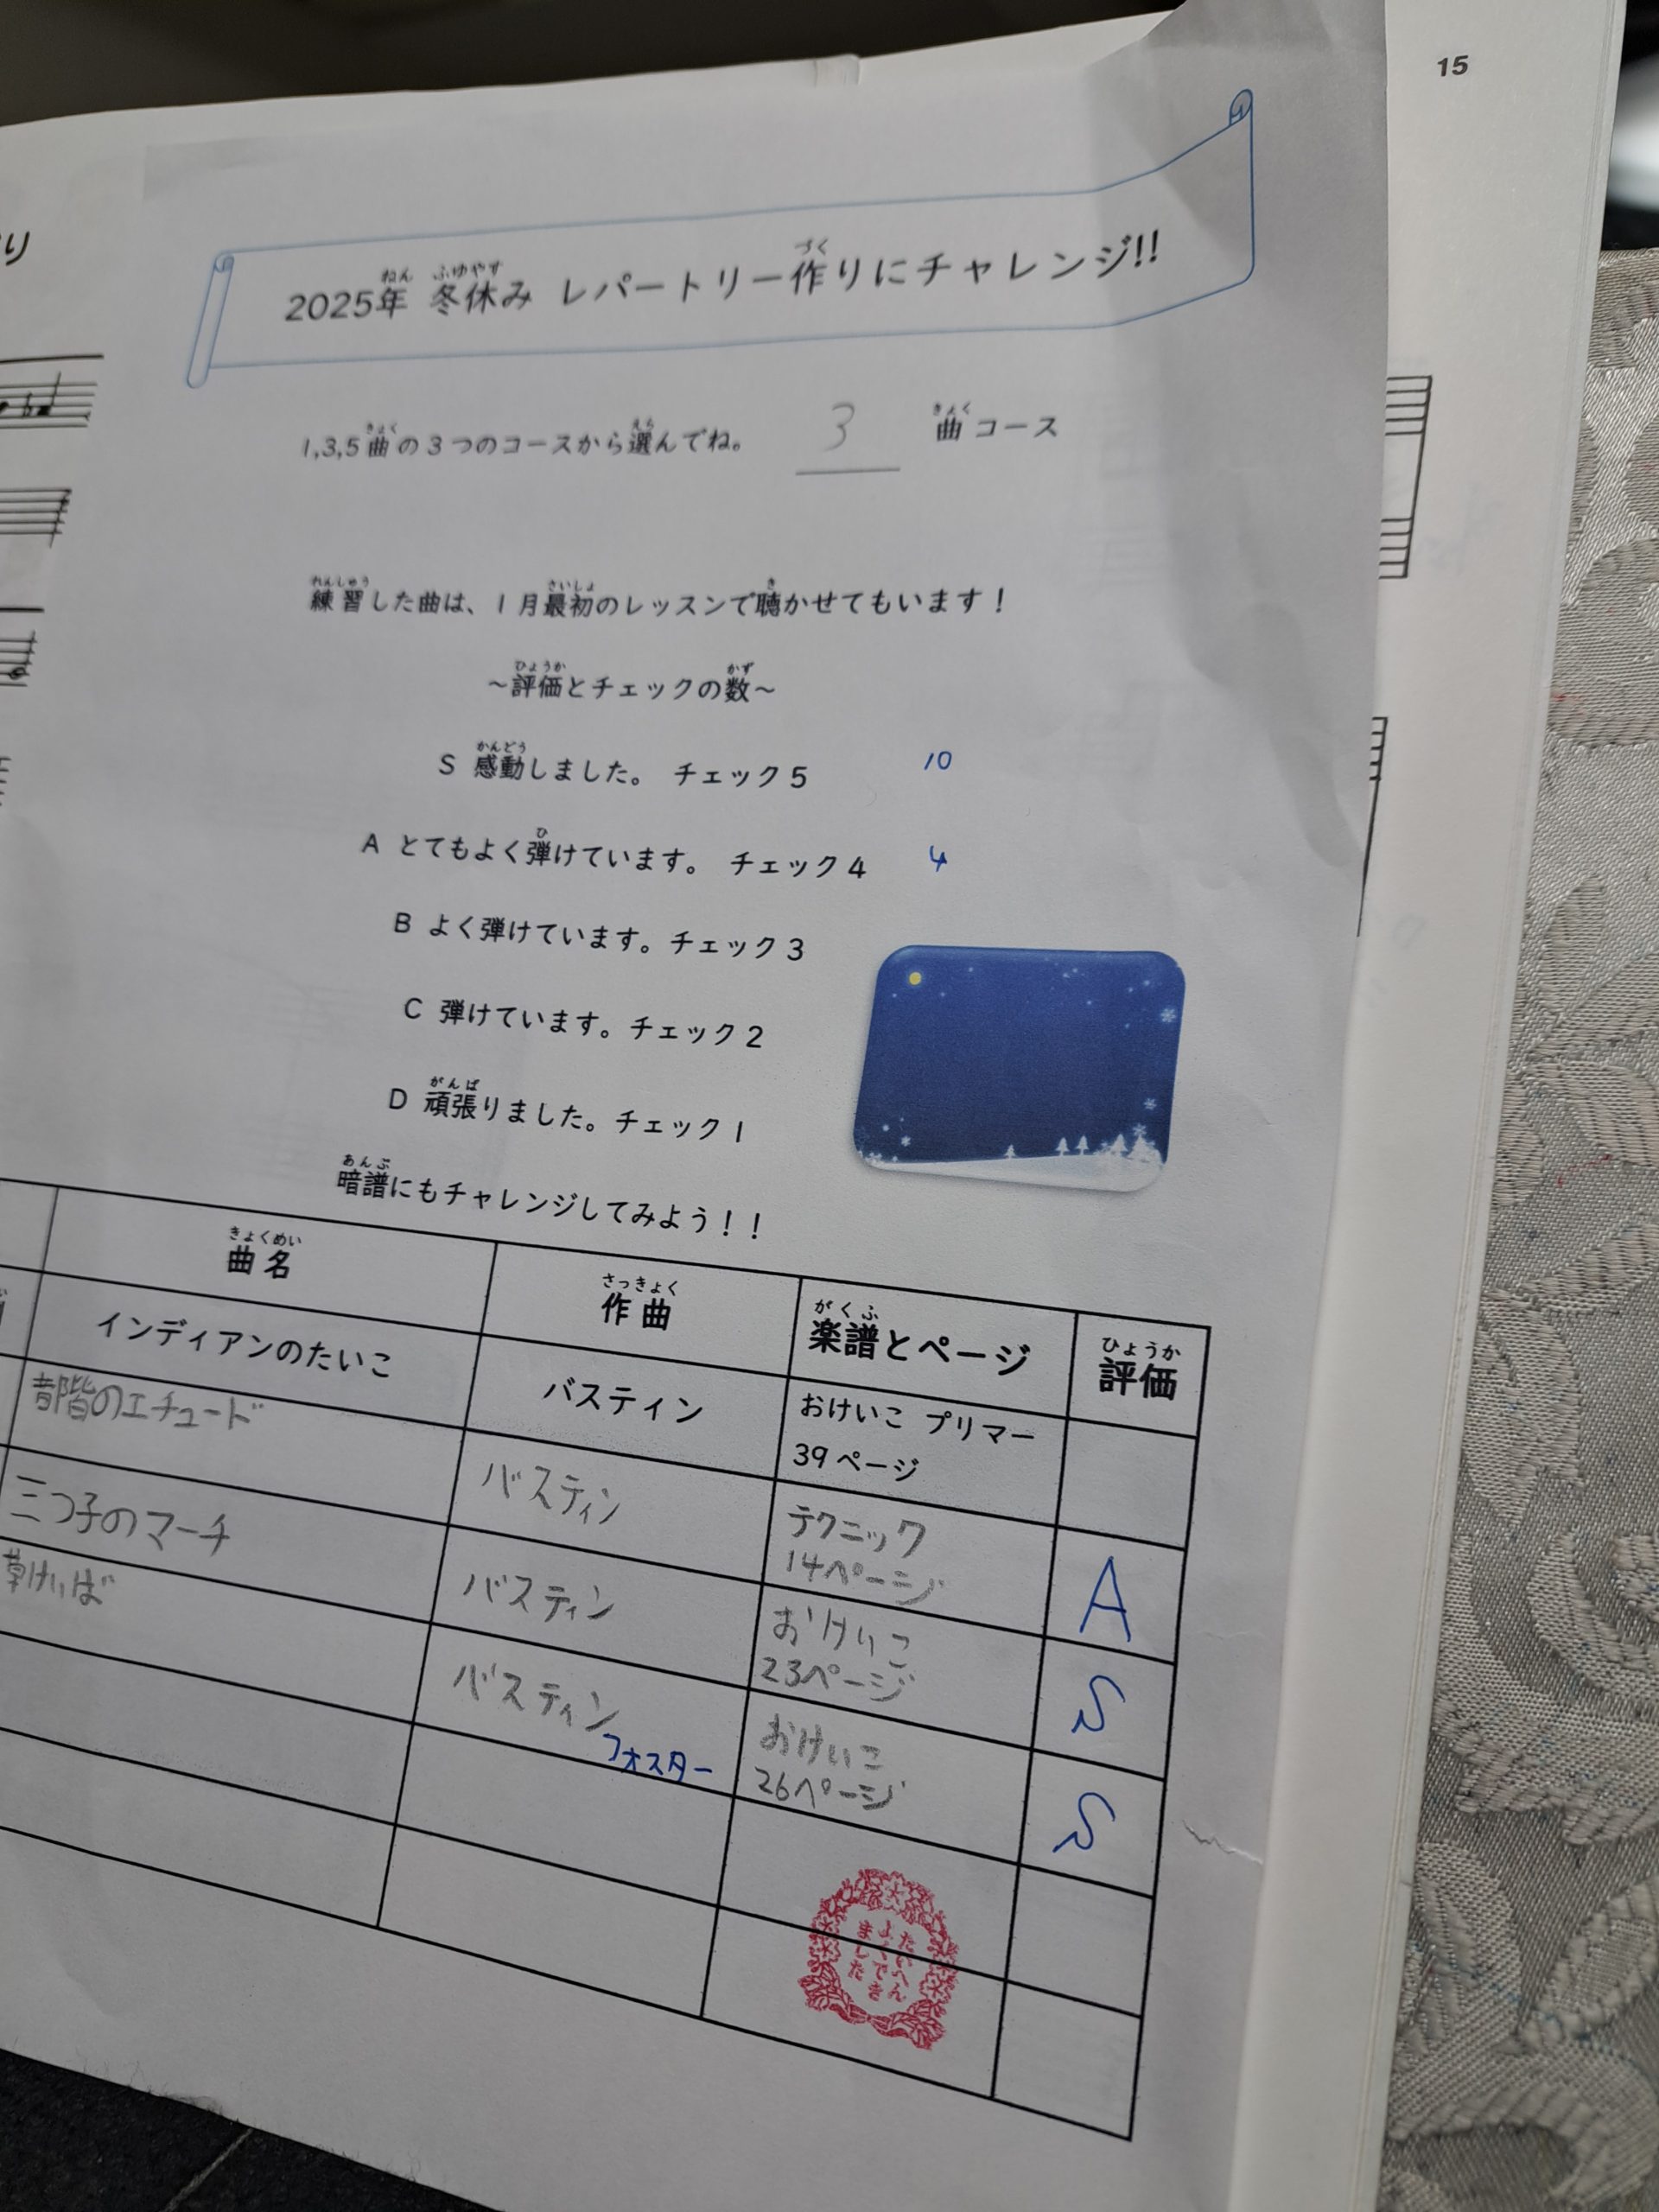 15
り
2025年 冬休み レパートリー作りにチャレンジ!!
ねん ふゆやす づく
1,3,5曲の3つのコースから選んでね。 3 曲コース
きょく えら きょく
練習した曲は、1月最初のレッスンで聴かせてもいます！
れんしゅう さいしょ き
～評価とチェックの数～
ひょうか かず
S 感動しました。 チェック5 10
かんどう
A とてもよく弾けています。 チェック4 4
ひ
B よく弾けています。チェック3
C 弾けています。チェック2
D 頑張りました。チェック1
がんば
暗譜にもチャレンジしてみよう！！
あんぷ
曲名 作曲 楽譜とページ 評価
きょくめい さっきょく がくふ ひょうか
インディアンのたいこ バスティン おけいこ プリマー
39ページ
階のエチュード バスティン テクニック
14ページ A
三つ子のマーチ バスティン おけいこ
23ページ S
草けいば バスティン おけいこ
フォスター 26ページ S
たいへん
よくでき
ました